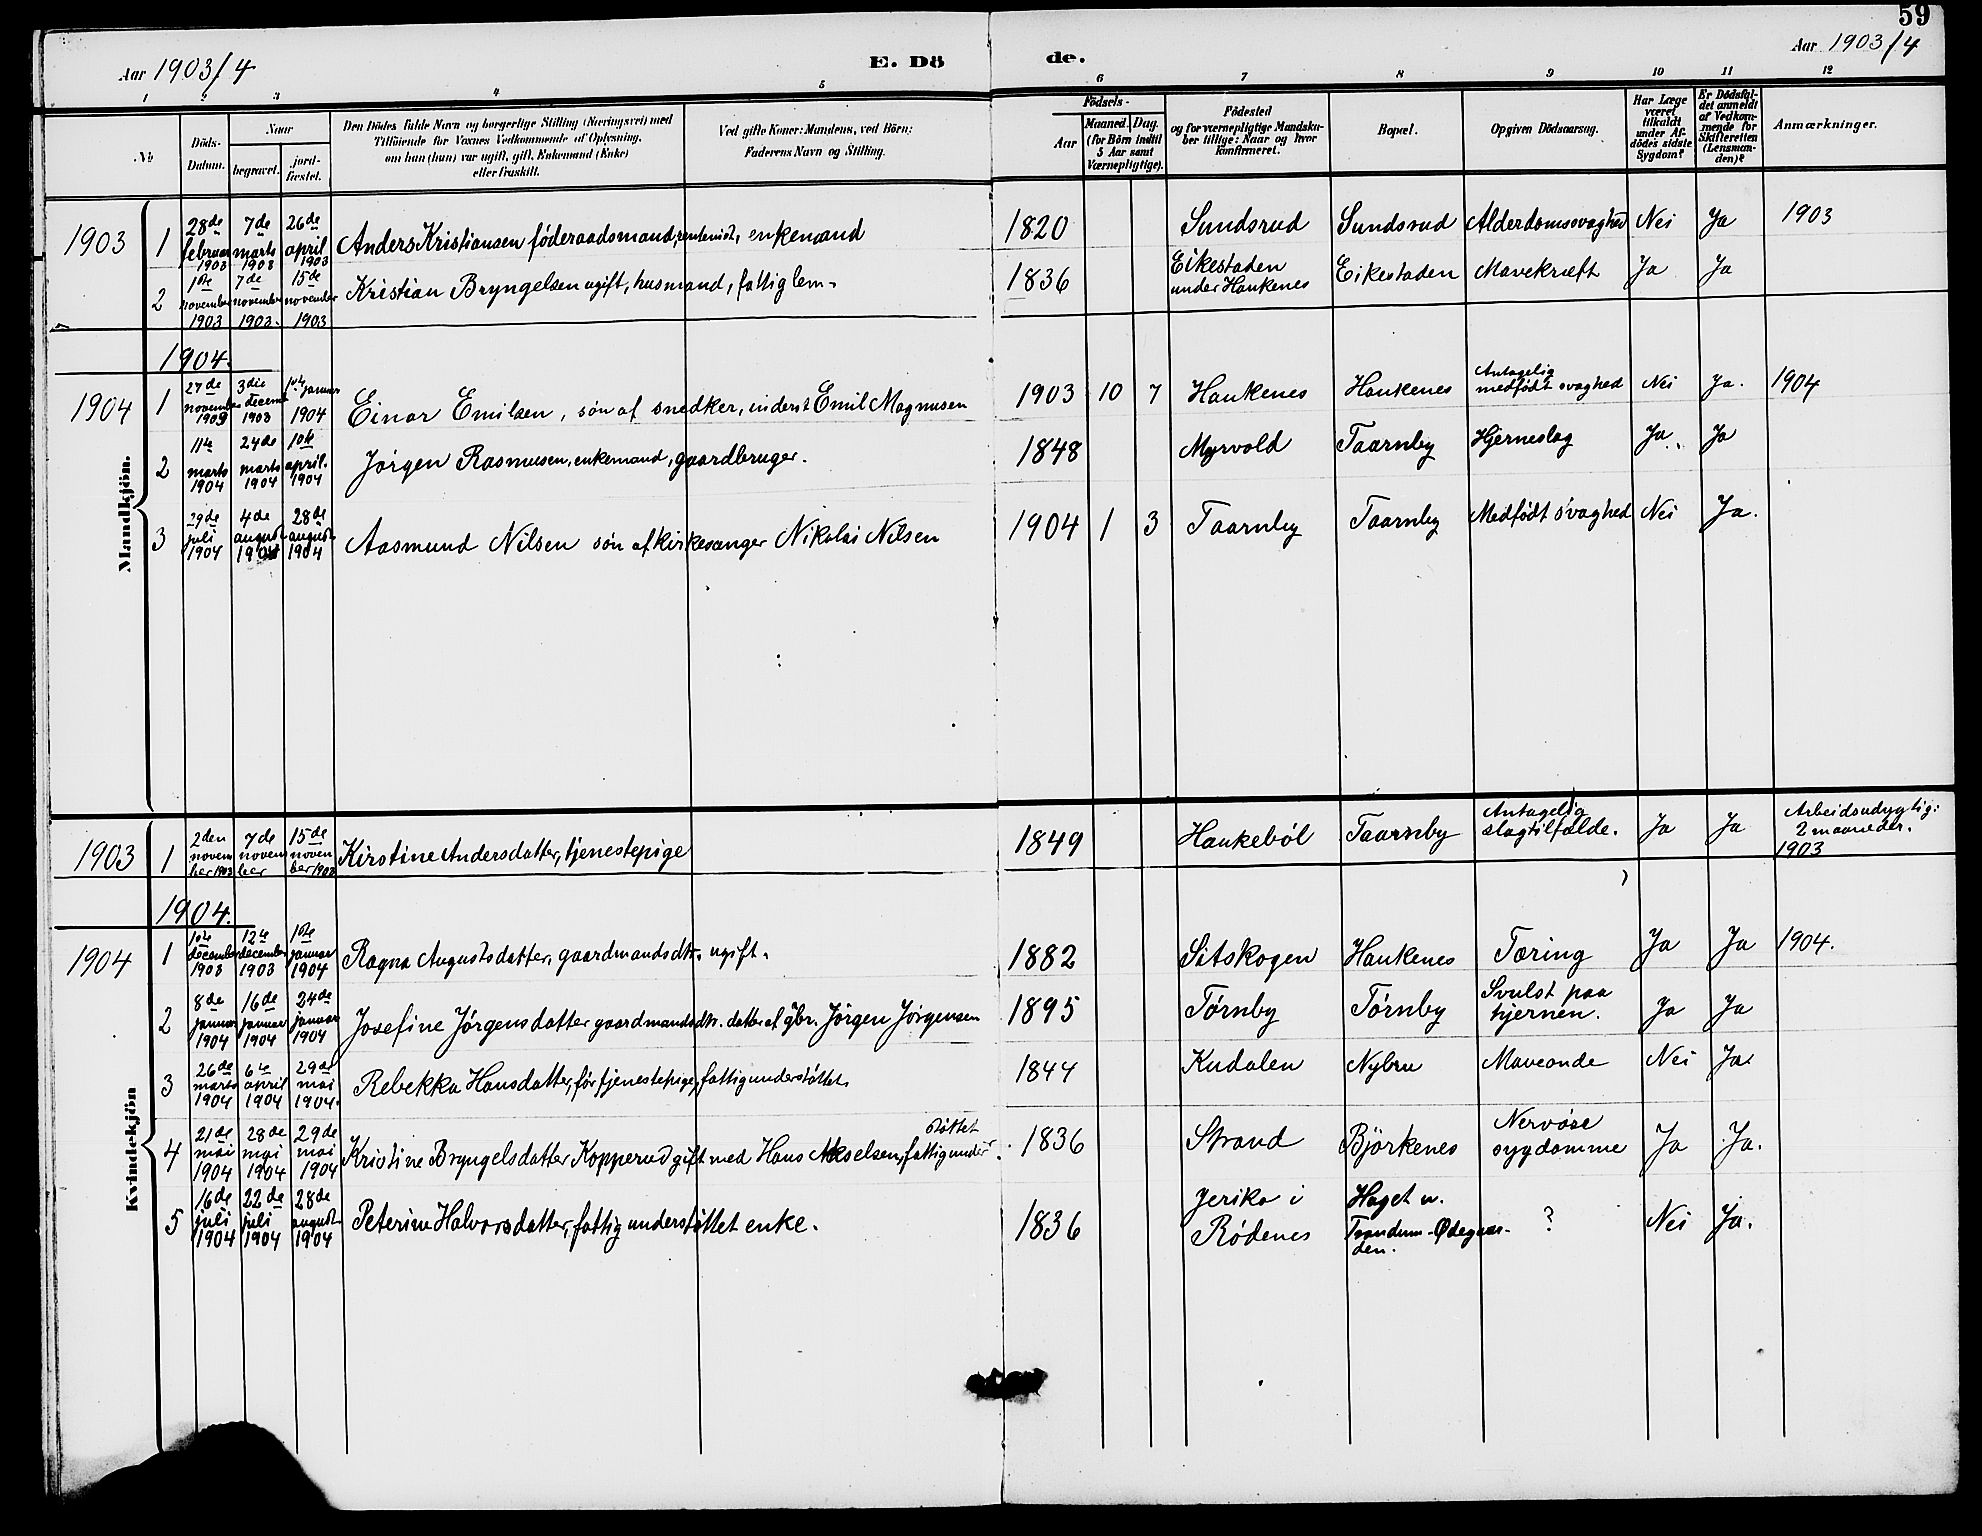 59
Aar 1903/4 E. Dö de. Aar 1903/4
1 2 3 4 5 6 7 8 9 10 11 12
No
Döds-Datum.
Naar
begravet.
jord-fæstet.
Den Dödes fulde Navn og borgerlige Stilling (Næringsvei) med
Tilföiende for Voxnes Vedkommende af Oplysning,
om han (hun) var ugift, gift, Enkemand (Enke)
eller fraskilt.
Ved gifte Koner: Mandens, ved Börn:
Faderens Navn og Stilling.
Födsels-
Aar
Maaned. Dag.
(for Börn indtil
5 Aar samt
Værnepligtige).
Födested
og for værnepligtige Mandska-
ber tillige: Naar og hvor
konfirmeret.
Bopæl.
Opgiven Dödsaarsag.
Har Læge
været
tilkaldt
under Af-
dödes sidste
Sygdom?
Er Dödsfal-
det anmeldt
af Vedkom-
mende for
Skifteretten
(Lensman-
den)?
Anmærkninger.
Mandkjön.
1903 1 28de februar 1903 7de marts 1903 26de april 1903 Anders Kristiansen føderaadsmand, rentenist, enkemand 1820 Sundsrud Sundsrud Alderdomssvaghed Nei Ja 1903
2 1ste november 1903 7de november 1903. 15de november 1903 Kristian Bryngelsen ugift, husmand, fattiglem. 1836 Eikestaden under Haukenes Eikestaden Mavekræft Ja Ja
1904.
1904 1 27de november 1903 3die decemb 1903 1ste januar 1904 Einar Emilsen, søn af snedker, inderst Emil Magnusen 1903 10 7 Haukenes Haukenes Antagelig medfødt svaghed Nei Ja. 1904
2 11te marts 1904 24de marts 1904 10de april. 1904 Jørgen Rasmussen, enkemand, gaardbruger. 1848 Myrvold Taarnby Hjerneslag Ja. Ja
3 29de juli 1904 4de august 1904 28de august 1904 Aasmund Nilsen søn af kirkesanger Nikolai Nilsen 1904 1 3 Taarnby Taarnby Medfødt svaghed Nei Ja.
Kvindekjön
1903 1 2den novem ber 1903 7de novem ber 15de novem ber 1903 Kirstine Andersdatter, tjenestepige 1849 Haukebøl Taarnby Antagelig slagtilfælde. Ja Ja Arbeidsudygtig: 2 maaneder. 1903
1904.
1904 1 1ste december 1903 12te december 1903 1ste januar 1904 Ragna Augustsdatter, gaardmandsdtr. ugift. 1882 Sitskogen Haukenes Tæring Ja Ja 1904.
2 8de januar 1904 16de januar 1904 24de januar 1904 Josefine Jørgensdatter gaardmandsdtr. datter af gbr. Jørgen Jørgensen 1895 Tørnby Tørnby Svulst paa hjernen. Ja Ja
3 26de marts 1904 6te april 1904 29de mai 1904. Rebekka Hansdatter, før tjenestepige, fattigunderstøttet. 1844 Kudalen Nybru Maveonde Nei Ja.
4 21de mai 1904 28de mai 1904 29de mai 1904 Kristine Bryngelsdatter Kopperud gift med Hans Akselsen, fattigunderstøttet 1836 Strand Björkenes Nervøse sygdomme Ja Ja.
5 16de juli 1904 22de juli 1904 28de august 1904 Peterine Halvorsdatter, fattig understøttet enke. 1836 Jeriko i Rödenes Haget u. Trandum-Ødegaarden. ? Nei Ja.